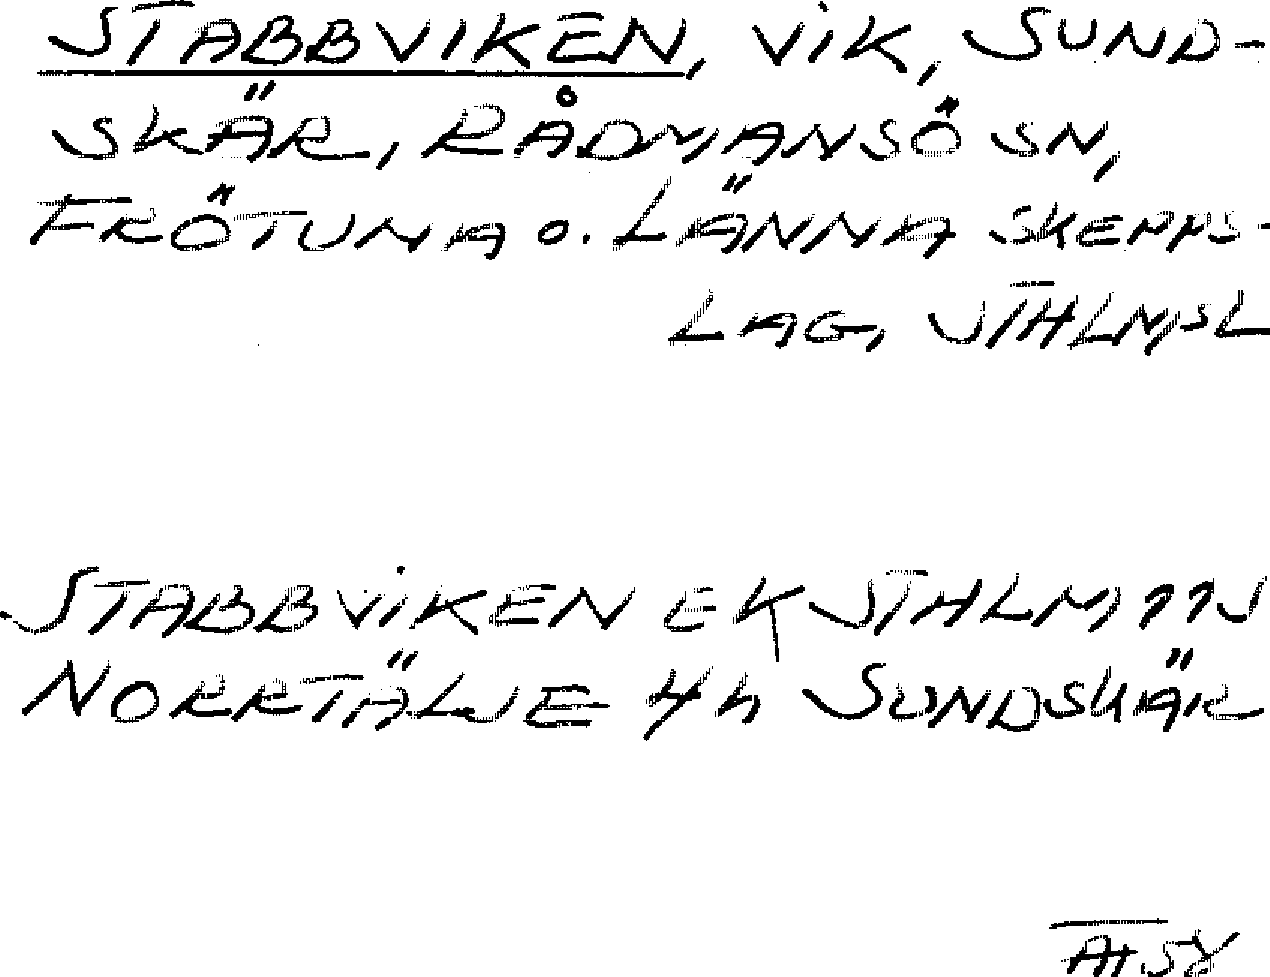 STABBVIKEN, VIK, SUND-
SKÄR, RÅDMANSÖ SN,
FRÖTUNA O. LÄNNA SKEPPS-
LAG, STHLMSL
STABBVIKEN EK STHLM 11SV
NORRTÄLJE 4h SUNDSKÄR